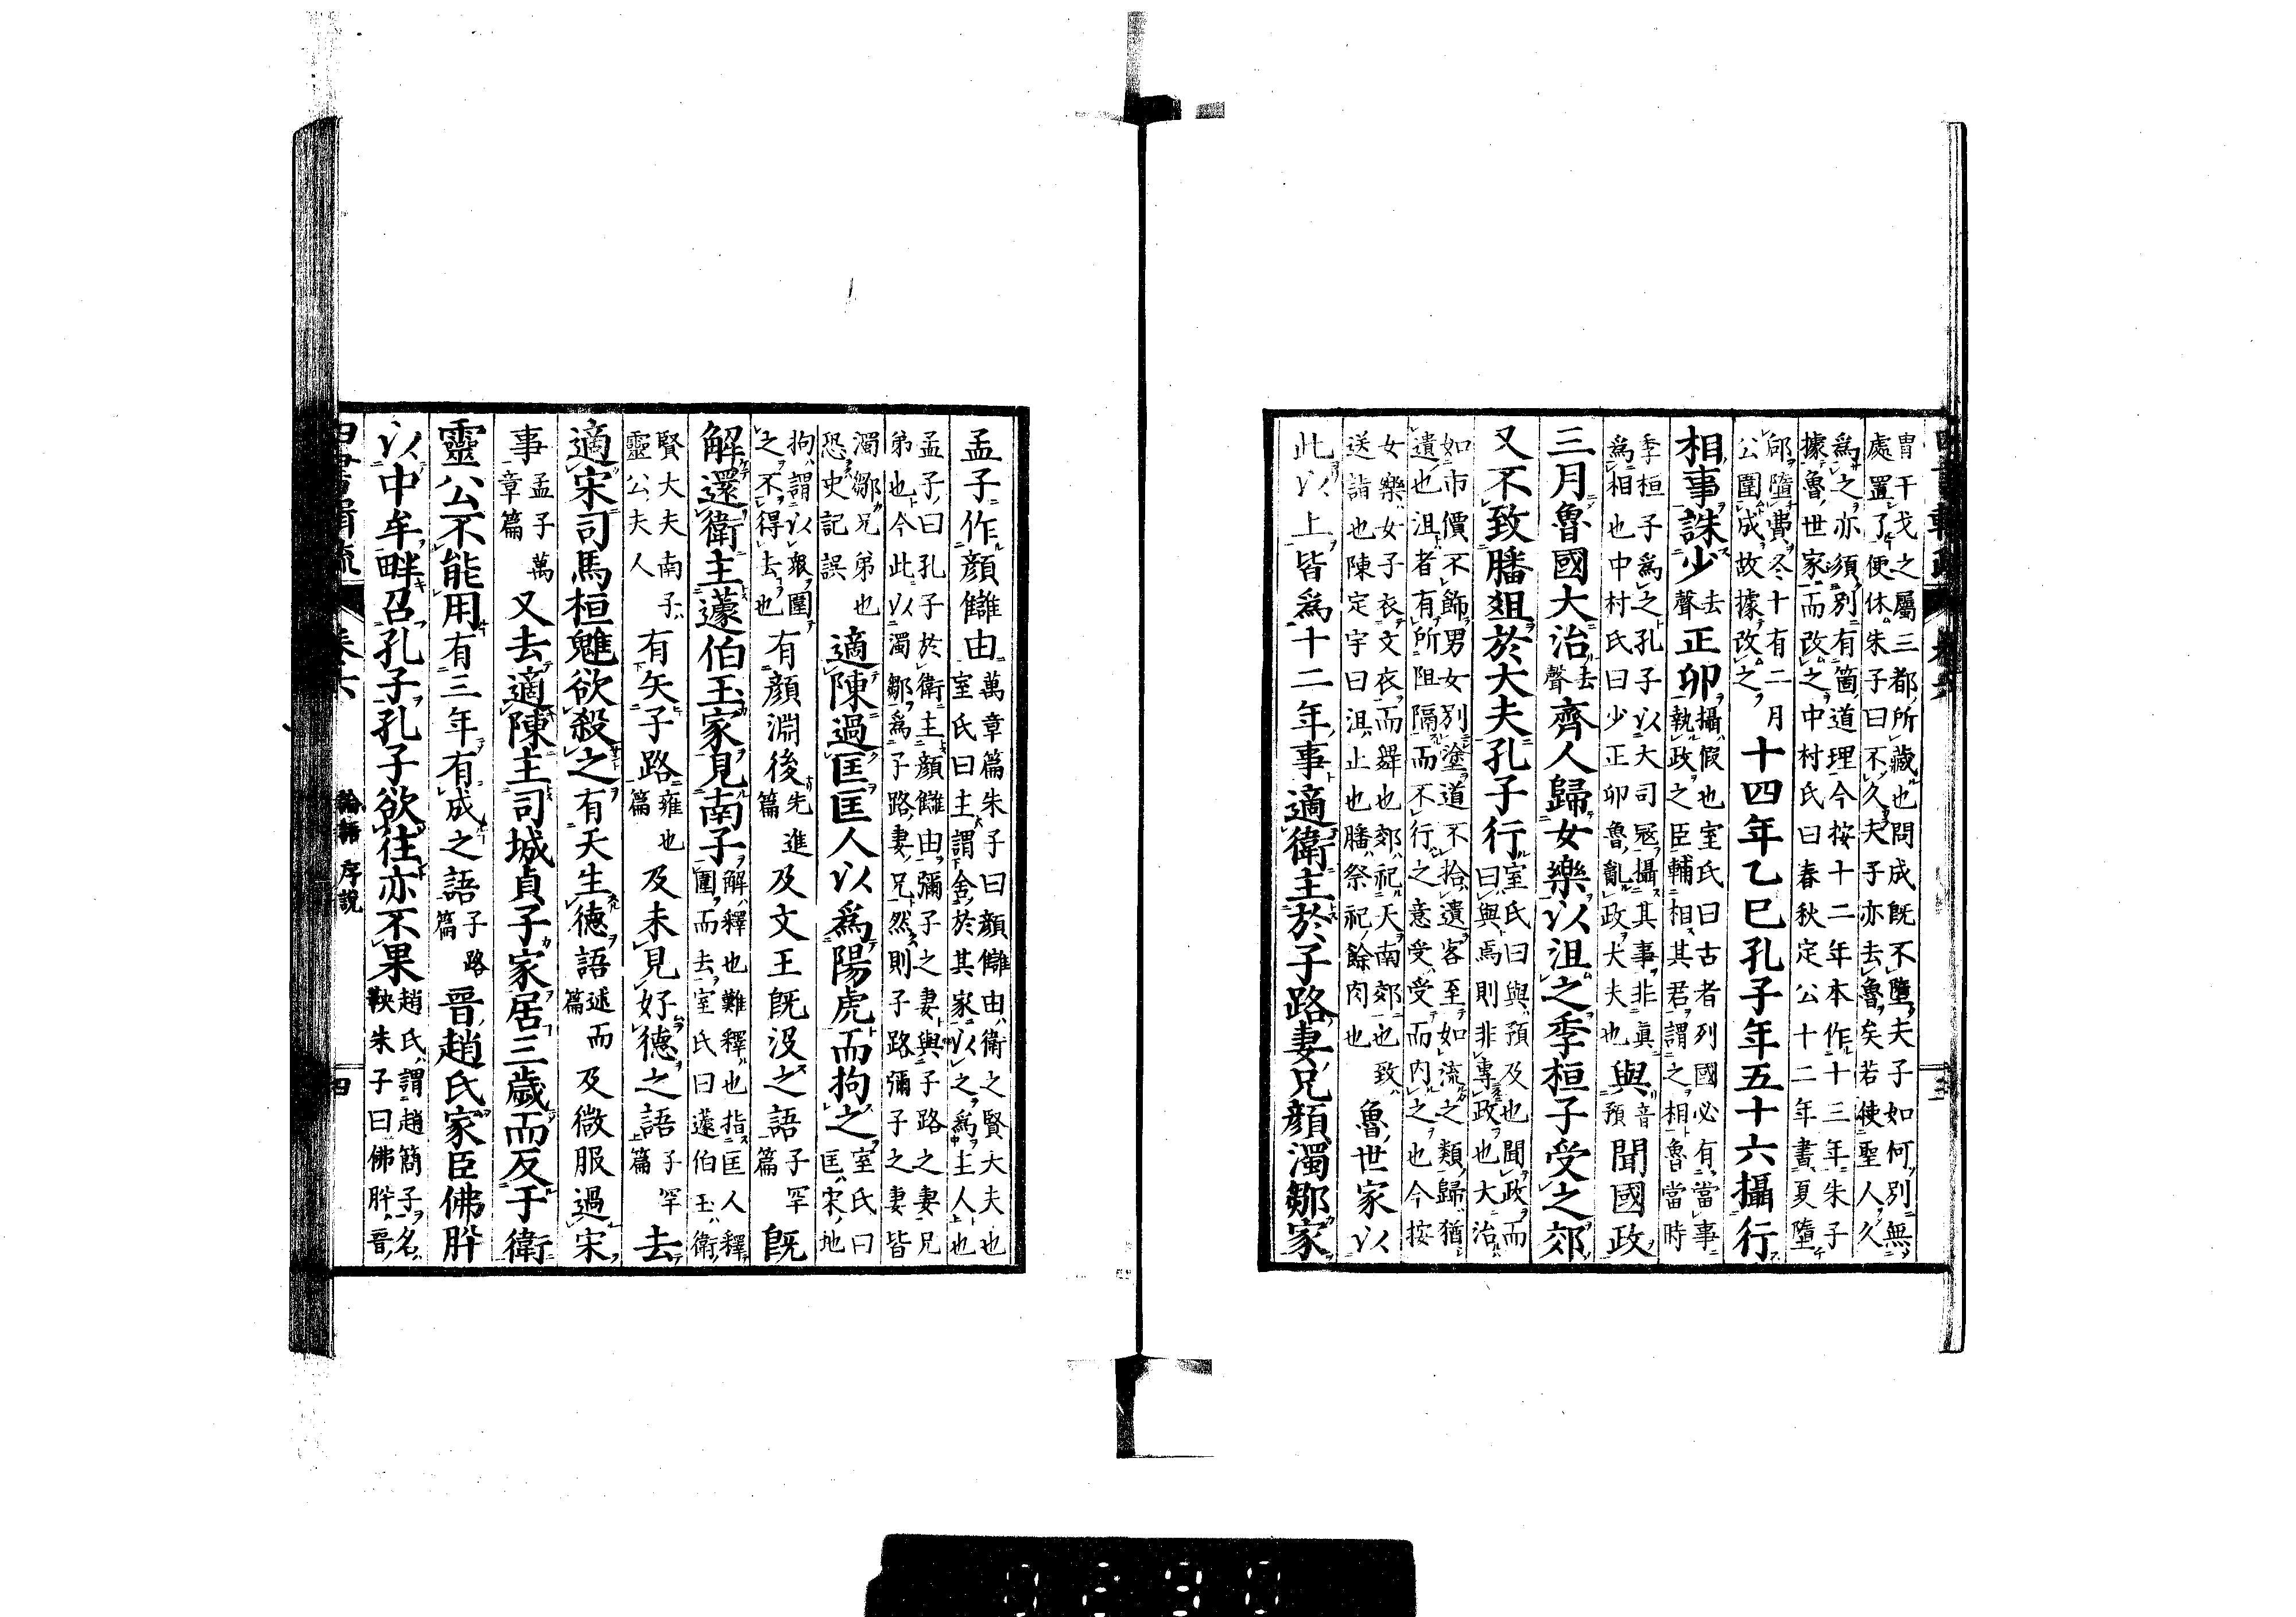 胄干戈之屬三都所藏也問成既不墮夫子如何別無
處置了便休朱子曰不久夫子亦去魯矣若使聖人久
爲之亦須別有箇道理今按十二年本作十三年朱子
據魯世家而改之中村氏曰春秋定公十二年書夏墮
郈墮費冬十有二月
公圍成故據改之
十四年乙巳孔子年五十六攝行
相事誅少去聲正卯攝假也室氏曰古者列國必有當事
執政之臣輔相其君謂之相魯當時
季桓子爲之孔子以大司寇攝其事非眞
爲相也中村氏曰少正卯魯亂政大夫也
與音預聞國政
三月魯國大治去聲齊人歸女樂以沮之季桓子受之郊
又不致膰俎於大夫孔子行室氏曰與預及也聞政而
曰與焉則非專政也大治
如市價不飾男女別塗道不拾遺客至如流之類歸猶
遺也沮者有所阻隔而不行之意受受而内之也今按
女樂女子衣文衣而舞也郊祀天南郊也致
送詣也陳定宇曰沮止也膰祭祀餘肉也
魯世家以
此以上皆爲十二年事適衛主於子路妻兄顏濁鄒家
孟子作顏讎由萬章篇朱子曰顏讎由衛之賢大夫也
室氏曰主謂舍於其家以之爲主人也
孟子曰孔子於衛主顏讎由彌子之妻與子路之妻兄
弟也今此以濁鄒爲子路妻兄然則子路彌子之妻皆
濁鄒兄弟也
恐史記誤
適陳過匡匡人以爲陽虎而拘之室氏曰
匡宋地
拘謂以衆圍
之不得去也
有顏淵後先進篇及文王既沒之語子罕篇既
解還衛主蘧伯玉家見南子解釋也難釋也指匡人釋
圍而去室氏曰蘧伯玉衛
賢大夫南子
靈公夫人
有矢子路雍也篇及未見好德之語子罕上篇去
適宋司馬桓魋欲殺之有天生德語述而篇及微服過宋
事孟子萬章篇又去適陳主司城貞子家居三歲而反于衛
靈公不能用有三年有成之語子路篇晉趙氏家臣佛肸
以中牟畔召孔子孔子欲往亦不果趙氏謂趙簡子名
鞅朱子曰佛肸晉
卷六
論語序說
四